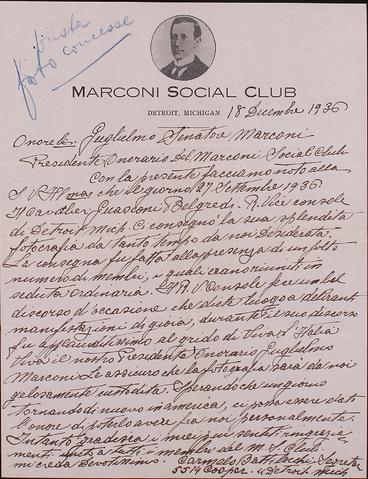 viste
foto concesse
MARCONI SOCIAL CLUB
DETROIT, MICHIGAN 18 Dicembre 1936
Guglielmo Senatore Marconi
Presidente Onorario Del Marconi Social Club
Con la presente facciamo noto alla
che il giorno 27 Settembre 1936
R. Vice console
di Detroit Mich. Ci consegnò la sua splendita
fotografia da tanto tempo da noi desiderata.
La consegna fu fatta alla presenza di un folto
numero di membri, i quali erano riuniti in
seduta ordinaria. Il R. V. Console fece un bel
discorso d'occasione che diete luogo a deliranti
manifestazioni di gioia, durante il suo discorso
fu applauditissimo al grido di Viva l'Italia
Viva il nostro Presidente Onorario Guglielmo
Marconi. Le assicuro che la fotografia sarà da noi
gelosamente custodita. Sperando che un giorno
tornando di nuovo in america, ci possa essere dato
l'onore di poterlo avere fra noi personalmente.
Intanto gradisca i miei più sentiti ringrazia-
menti uniti a tutti i membri del M. S. Club.
mi creda Devotissimo. Carmelo
5514 Cooper. Detroit Mich